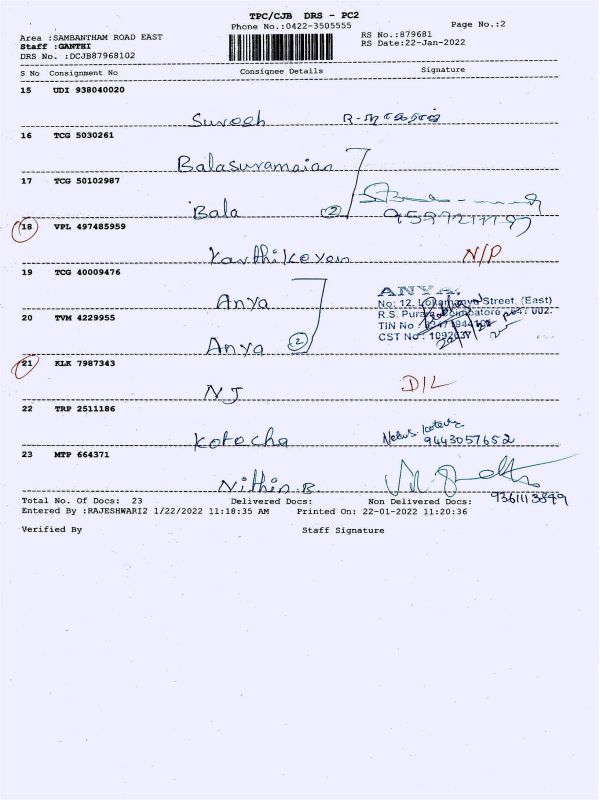 TPC/CJB DRS - PC2
Phone No.:0422-3505555
Page No.:2
Area :SAMBANTHAM ROAD EAST
RS No.:879681
Staff :GANTHI
RS Date:22-Jan-2022
DRS No. :DCJB87968102
S No Consignment No Consignee Details Signature
15 UDI 938040020
Suresh
16 TCG 5030261
Balasuramaian
17 TCG 50102987
Bala 2
18 VPL 497485959
Karthikeyan N/P
19 TCG 40009476
Anya ANYA
No: 12, Street, (East)
20 TVM 4229955
R.S. Puram, Coimbatore - 641 002.
TIN No
Anya 2
CST No
21 KLK 7987343
NJ D/L
22 TRP 2511186
Kotocha 9443057652
23 MTP 664371
Nithin.B
Total No. Of Docs: 23 Delivered Docs: Non Delivered Docs:
9361113849
Entered By :RAJESHWARI2 1/22/2022 11:18:35 AM Printed On: 22-01-2022 11:20:36
Verified By Staff Signature